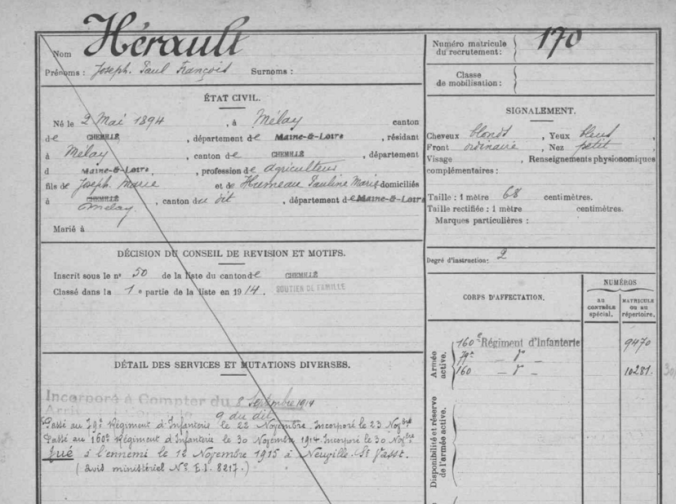 Nom Hérault
Prénoms : Joseph Paul François Surnoms :
Numéro matricule du recrutement : 170
Classe de mobilisation :
ÉTAT CIVIL.
Né le 2 Mai 1894 , à Mélay canton
de CHEMILLÉ , département de MAINE-&-LOIRE , résidant
à Mélay , canton de CHEMILLÉ , département
d MAINE-&-LOIRE , profession de agriculteur
fils de Joseph Marie et de Humeau Pauline Marie domiciliés
à CHEMILLÉ Mélay , canton du dit , département de MAINE-&-LOIRE
Marié à
SIGNALEMENT.
Cheveux blonds , Yeux bleus ,
Front ordinaire , Nez petit ,
Visage , Renseignements physionomiques
complémentaires :
Taille : 1 mètre 68 centimètres.
Taille rectifiée : 1 mètre centimètres.
Marques particulières :
DÉCISION DU CONSEIL DE REVISION ET MOTIFS.
Inscrit sous le n° 50 de la liste du canton de CHEMILLÉ
Classé dans la 1e partie de la liste en 1914. SOUTIEN DE FAMILLE
Degré d'instruction : 2
CORPS D'AFFECTATION.
NUMÉROS
AU CONTRÔLE spécial.
MATRICULE ou au répertoire.
Armée active.
160e Régiment d'Infanterie 9470
79e — d°
160 — d° 10281
Disponibilité et réserve de l'armée active.
DÉTAIL DES SERVICES ET MUTATIONS DIVERSES.
Incorporé à Compter du 8 Septembre 1914
9 du dit
Passé au 79e Régiment d'Infanterie le 22 Novembre. Incorporé le 23 Nov
Passé au 160e Régiment d'Infanterie le 30 Novembre 1914 Incorporé le 30 Nov
Tué à l'ennemi le 12 Novembre 1915 à Neuville St Vaast.
(avis ministériel No E.J. 8217.)